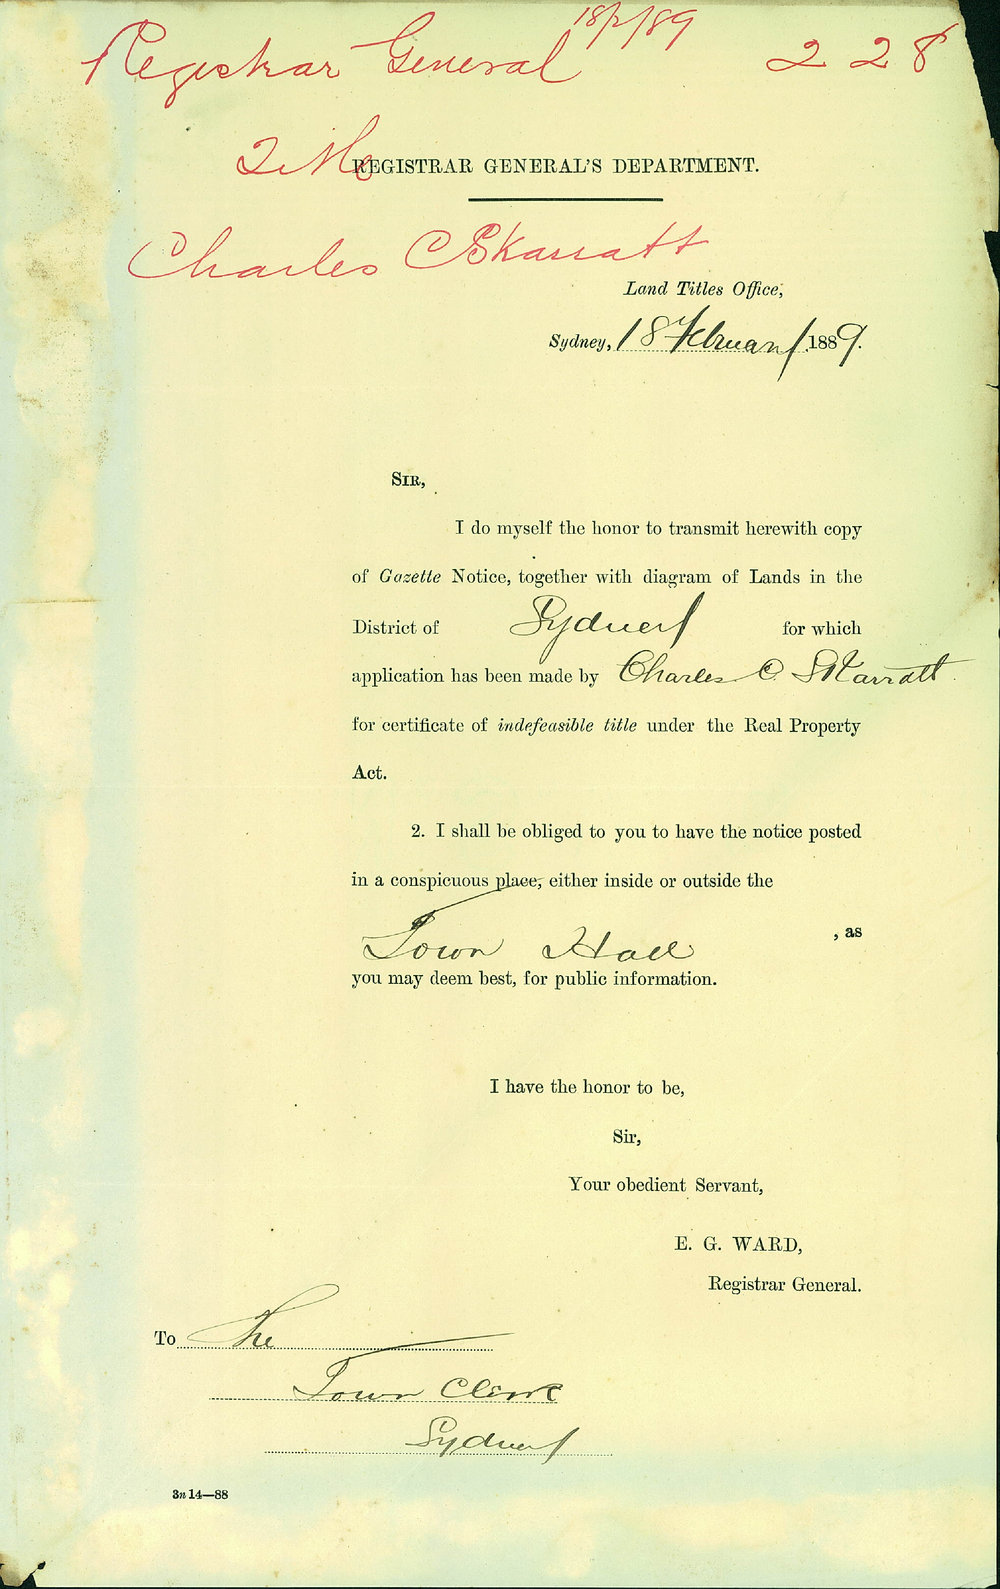 18/2/89
Registrar General 2 28
Title
REGISTRAR GENERAL'S DEPARTMENT.
Charles C Skarratt
Land Titles Office,
Sydney, 18 February 1889.
SIR,
I do myself the honor to transmit herewith copy
of Gazette Notice, together with diagram of Lands in the
District of Sydney for which
application has been made by Charles C. Skarratt
for certificate of indefeasible title under the Real Property
Act.
2. I shall be obliged to you to have the notice posted
in a conspicuous place, either inside or outside the
Town Hall , as
you may deem best, for public information.
I have the honor to be,
Sir,
Your obedient Servant,
E. G. WARD,
Registrar General.
To The
Town Clerk
Sydney
3n 14—88